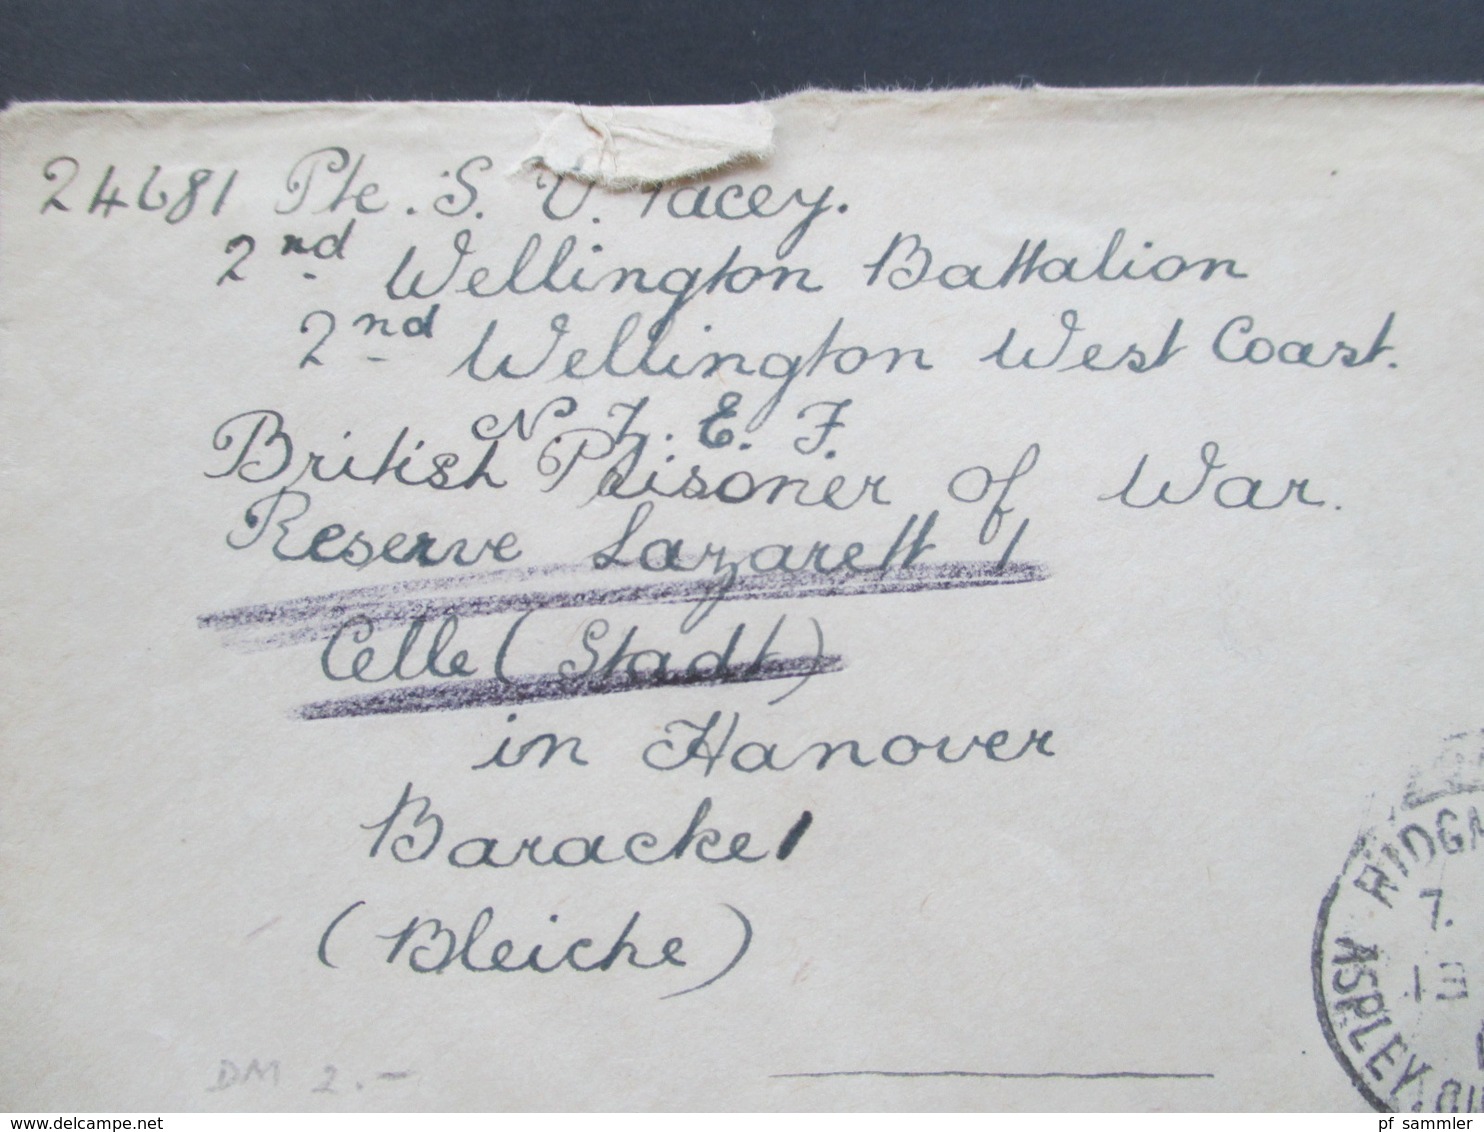 24681 Pte. S. V. Tacey.
2nd Wellington Battalion
2nd Wellington West Coast.
N. Z. E. F.
British Prisoner of War.
Reserve Lazarett 1
Celle (Stadt)
in Hanover
Baracke 1
(Bleiche)
DM 2.-
ASPLEY
pf_sammler